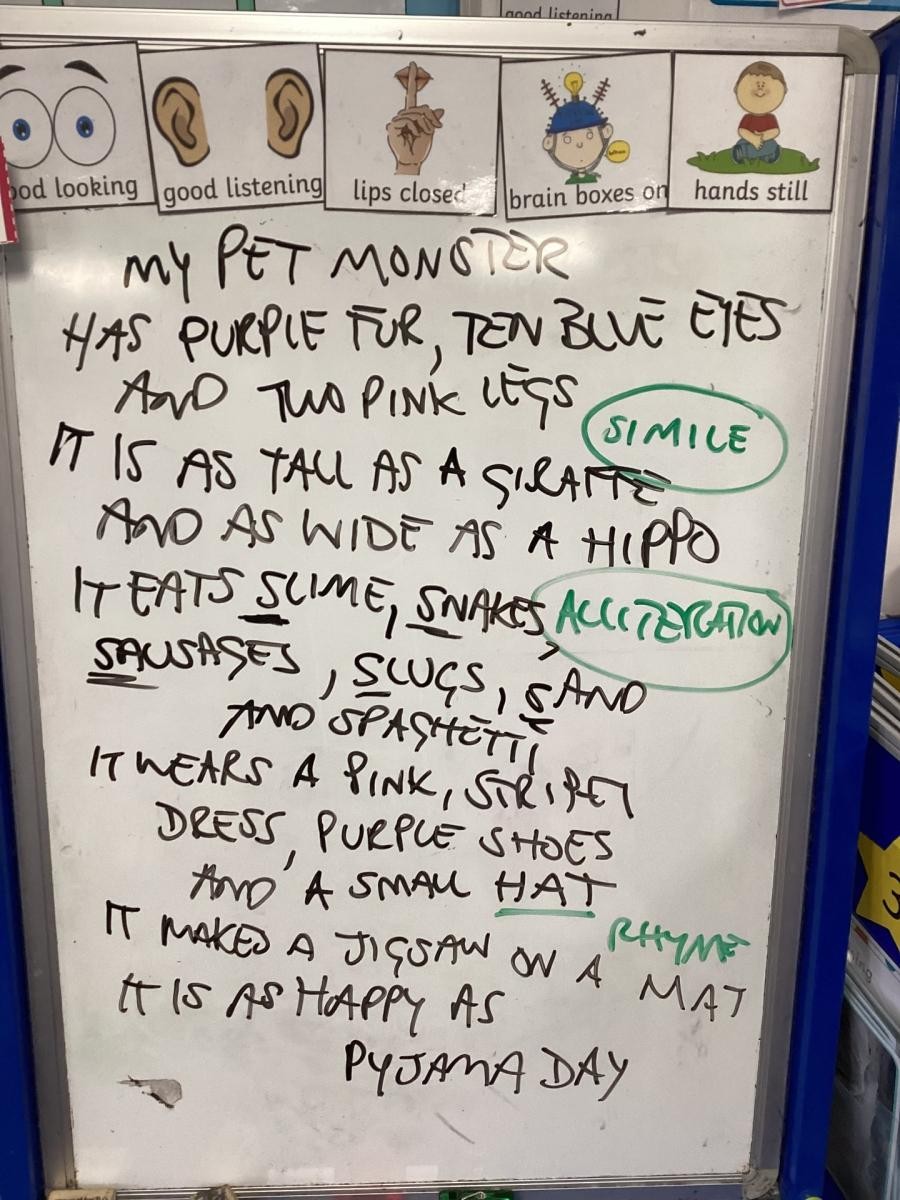 good listening
ood looking
good listening
lips closed
brain boxes on
hands still
MY PET MONSTER
HAS PURPLE FUR, TEN BLUE EYES
AND TWO PINK LEGS
SIMILE
IT IS AS TALL AS A GIRAFFE
AND AS WIDE AS A HIPPO
IT EATS SLIME, SNAKES,
ALLITERATION
SAUSAGES, SLUGS, SAND
AND SPAGHETTI
IT WEARS A PINK, STRIPEY
DRESS, PURPLE SHOES
AND A SMALL HAT
RHYME
IT MAKES A JIGSAW ON A MAT
IT IS AS HAPPY AS
PYJAMA DAY
3
ing